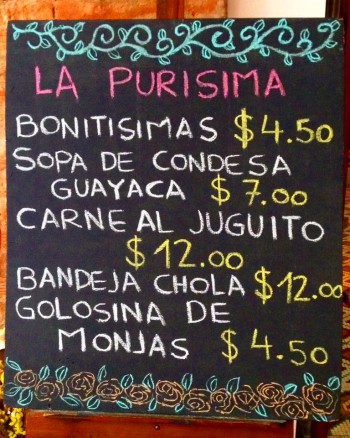 LA PURISIMA
BONITISIMAS $4.50
SOPA DE CONDESA
GUAYACA $7.00
CARNE AL JUGUITO
$12.00
BANDEJA CHOLA $12.00
GOLOSINA DE
MONJAS $4.50